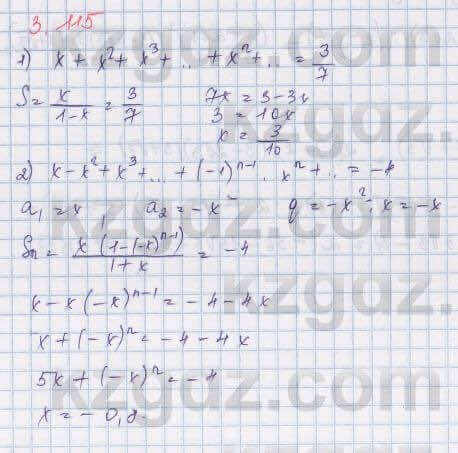 3.115
1) x + x² + x³ + .. + xⁿ + .. = 3/7
S = x/(1-x) = 3/7   7x = 3 - 3x
3 = 10x
x = 3/10
2) x - x² + x³ + ... + (-1)ⁿ⁻¹ · xⁿ + .. = -4
a₁ = x, a₂ = -x²   q = -x² : x = -x
Sₙ = x(1-(-x)ⁿ⁻¹)/(1+x) = -4
x - x(-x)ⁿ⁻¹ = -4 - 4x
x + (-x)ⁿ = -4 - 4x
5x + (-x)ⁿ = -4
x = -0,8
kzgdz.com